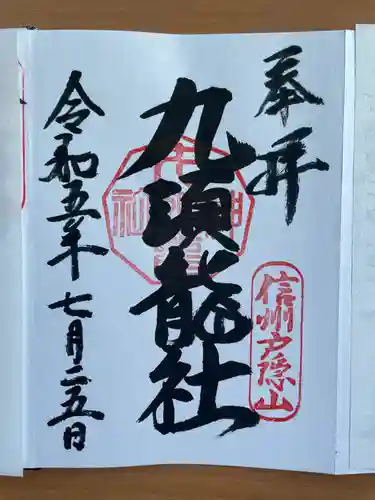 奉拝
信州戸隠山
九頭龍社
令和五年七月二五日